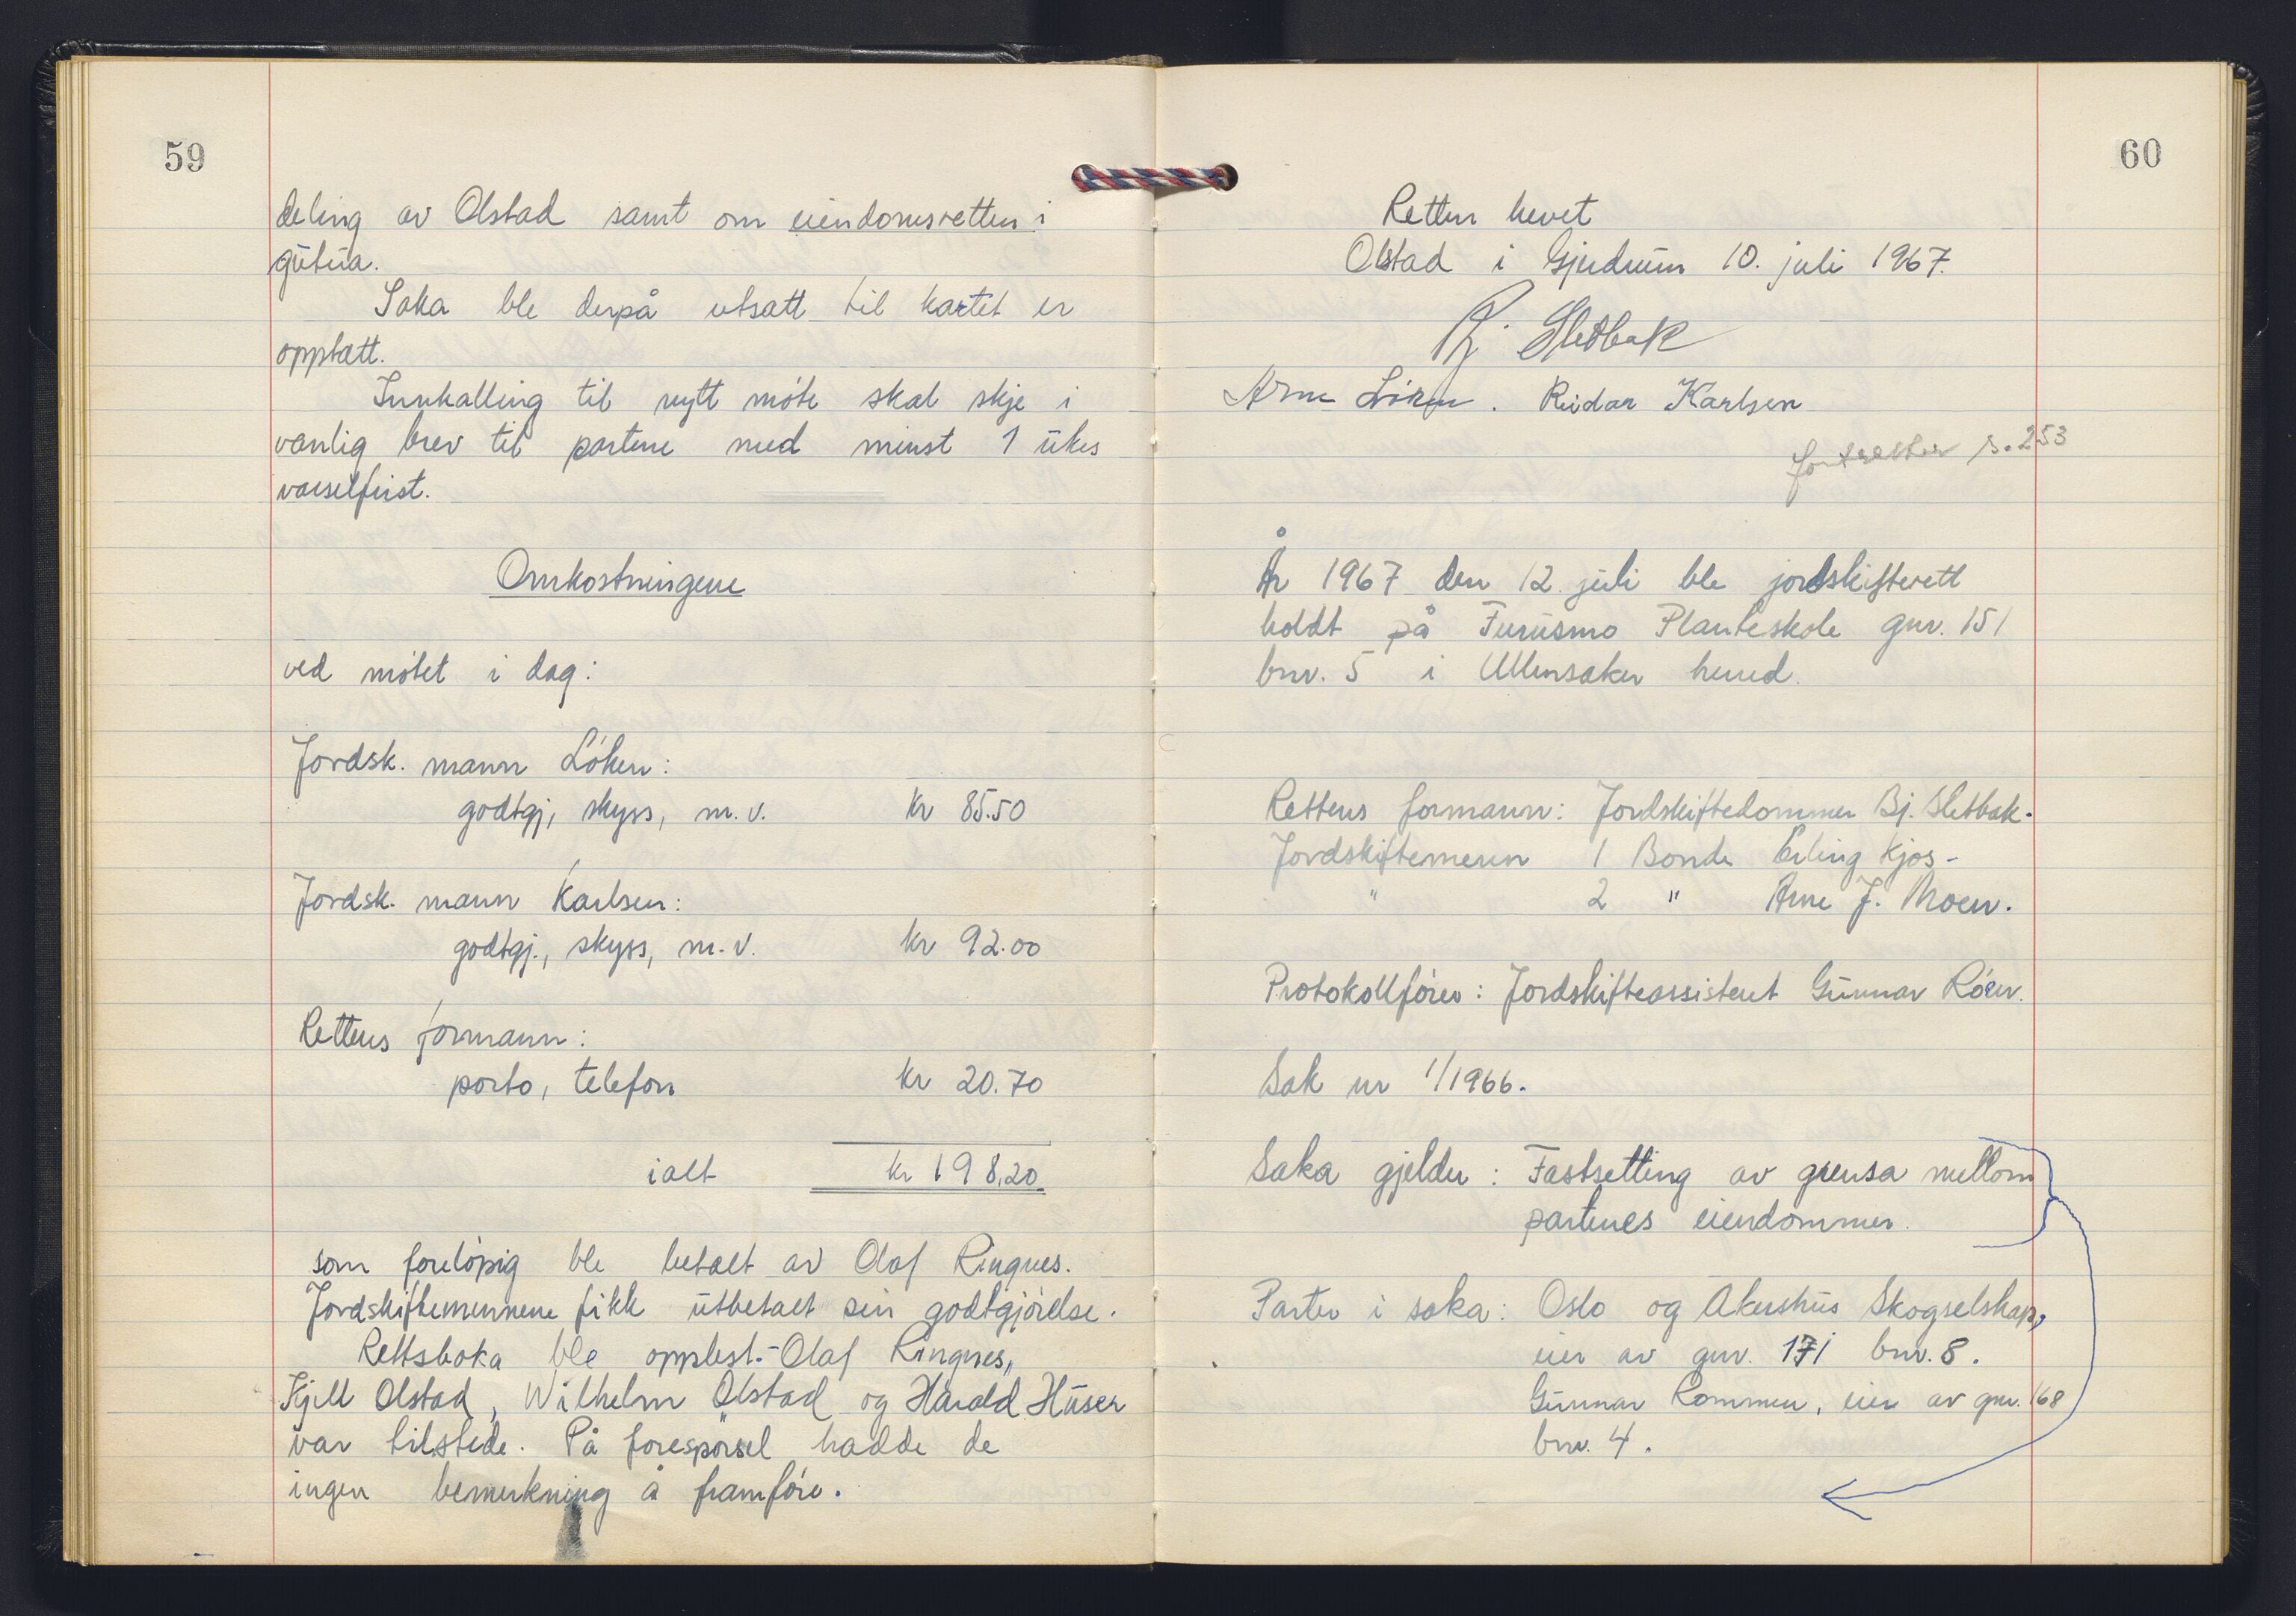 59
deling av Olstad samt om eiendomsretten i
gutua.
Saka ble derpå utsatt til kartet er
opptatt.
Innkalling til nytt möte skal skje i
vanlig brev til partene med minst 1 ukes
varselfrist.
Omkostningene
ved mötet i dag:
Jordsk. mann Löken:
godtgj, skyss, m.v. kr 85.50
Jordsk. mann Karlsen:
godtgj., skyss, m.v. kr 92.00
Rettens formann:
porto, telefon kr 20.70
ialt kr 198,20
som forelöpig ble betalt av Olaf Ringnes.
Jordskiftemennene fikk utbetalt sin godtgjörelse.
Rettsboka ble opplest.- Olaf Ringnes,
Kjell Olstad, Wilhelm Olstad og Harald Huser
var tilstede. På forespörsel hadde de
ingen bemerkning å framföre.
60
Retten hevet
Olstad i Gjerdrum 10. juli 1967.
Bj. Sletbak
Arne Löken. Reidar Karlsen
fortsetter s. 253
År 1967 den 12 juli ble jordskifterett
holdt på Furusmo Planteskole gnr. 151
bnr. 5 i Ullensaker herred.
Rettens formann: Jordskiftedommer Bj. Sletbak.
Jordskiftemenn 1 Bonde Erling Kjos-
" 2 " Arne J. Moen.
Protokollförer: Jordskifteassistent Gunnar Röen.
Sak nr 1/1966.
Saka gjelder: Fastsetting av grensa mellom
partenes eiendommer.
Parter i saka: Oslo og Akershus Skogselskap,
eier av gnr. 171 bnr. 8.
Gunnar Rommen, eier av gnr. 168
bnr. 4.